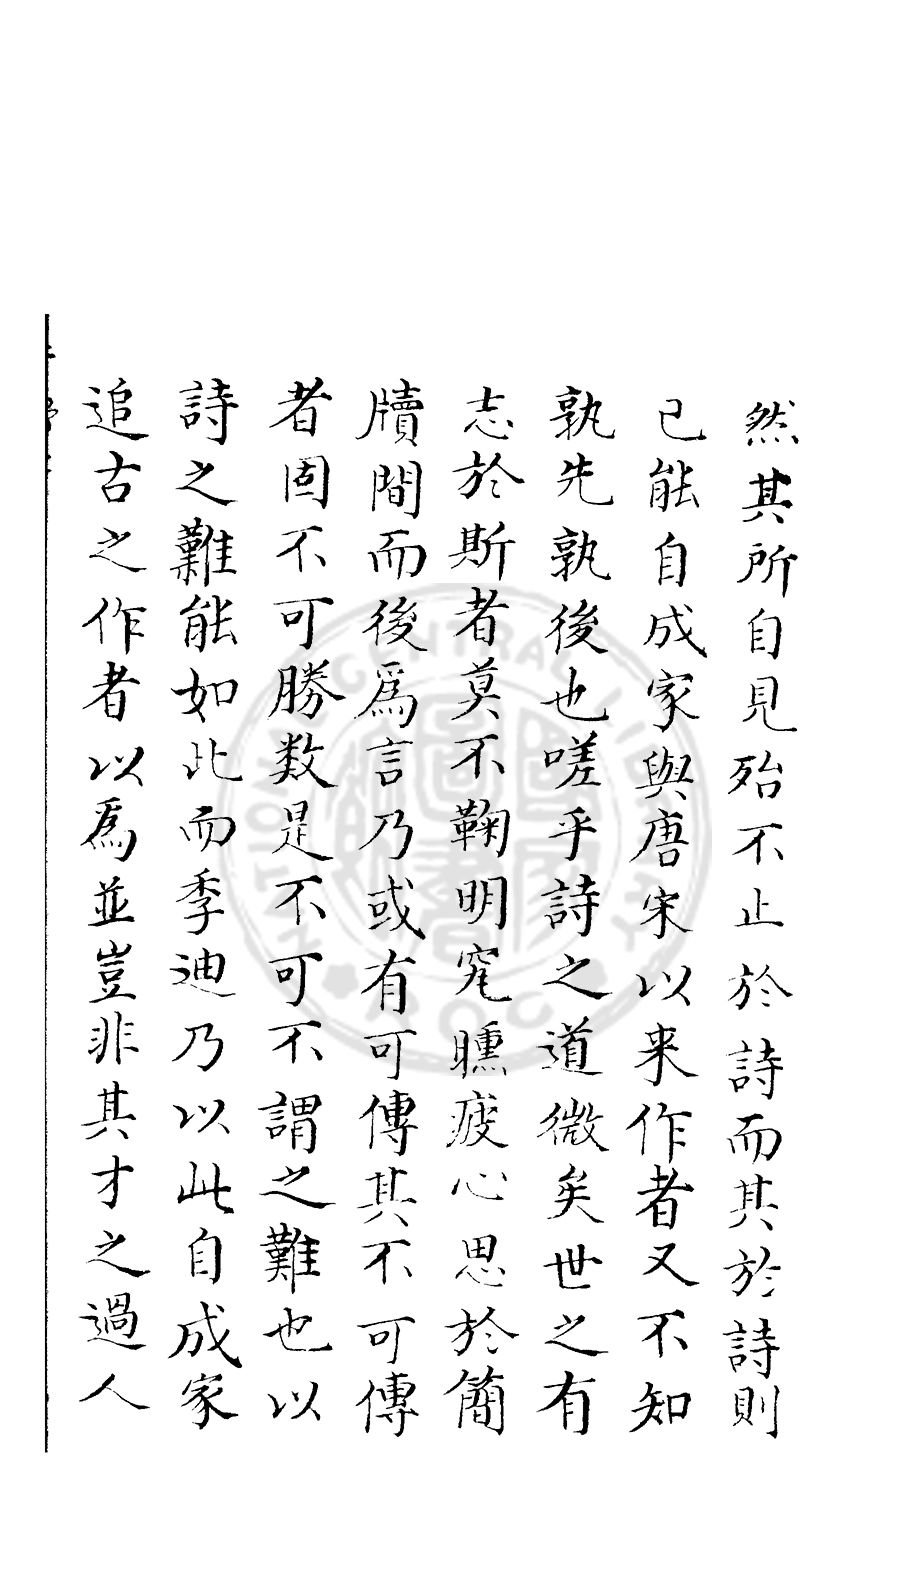 然其所自見殆不止於詩而其於詩則
已能自成家與唐宋以来作者又不知
孰先孰後也嗟乎詩之道微矣世之有
志於斯者莫不鞠明究曛疲心思於簡
牘間而後爲言乃或有可傳其不可傳
者固不可勝数是不可不謂之難也以
詩之難能如此而季迪乃以此自成家
追古之作者以爲並豈非其才之過人
NATIONAL CENTRAL LIBRARY